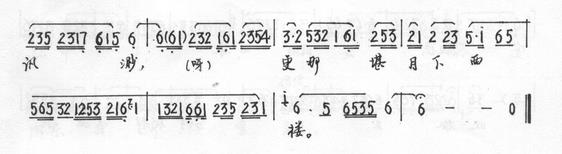 235 2317 615 6 | 6(61) 232 161 2354 | 3·2 532 161 253 | 21 2 23 5·i 65
讯 渺, (呀) 更那 堪月下西
565 32 1253 216 2 1 | 132 1 661 235 231 | i 6 · 5 6535 6 | 6 - - 0 ‖
楼。